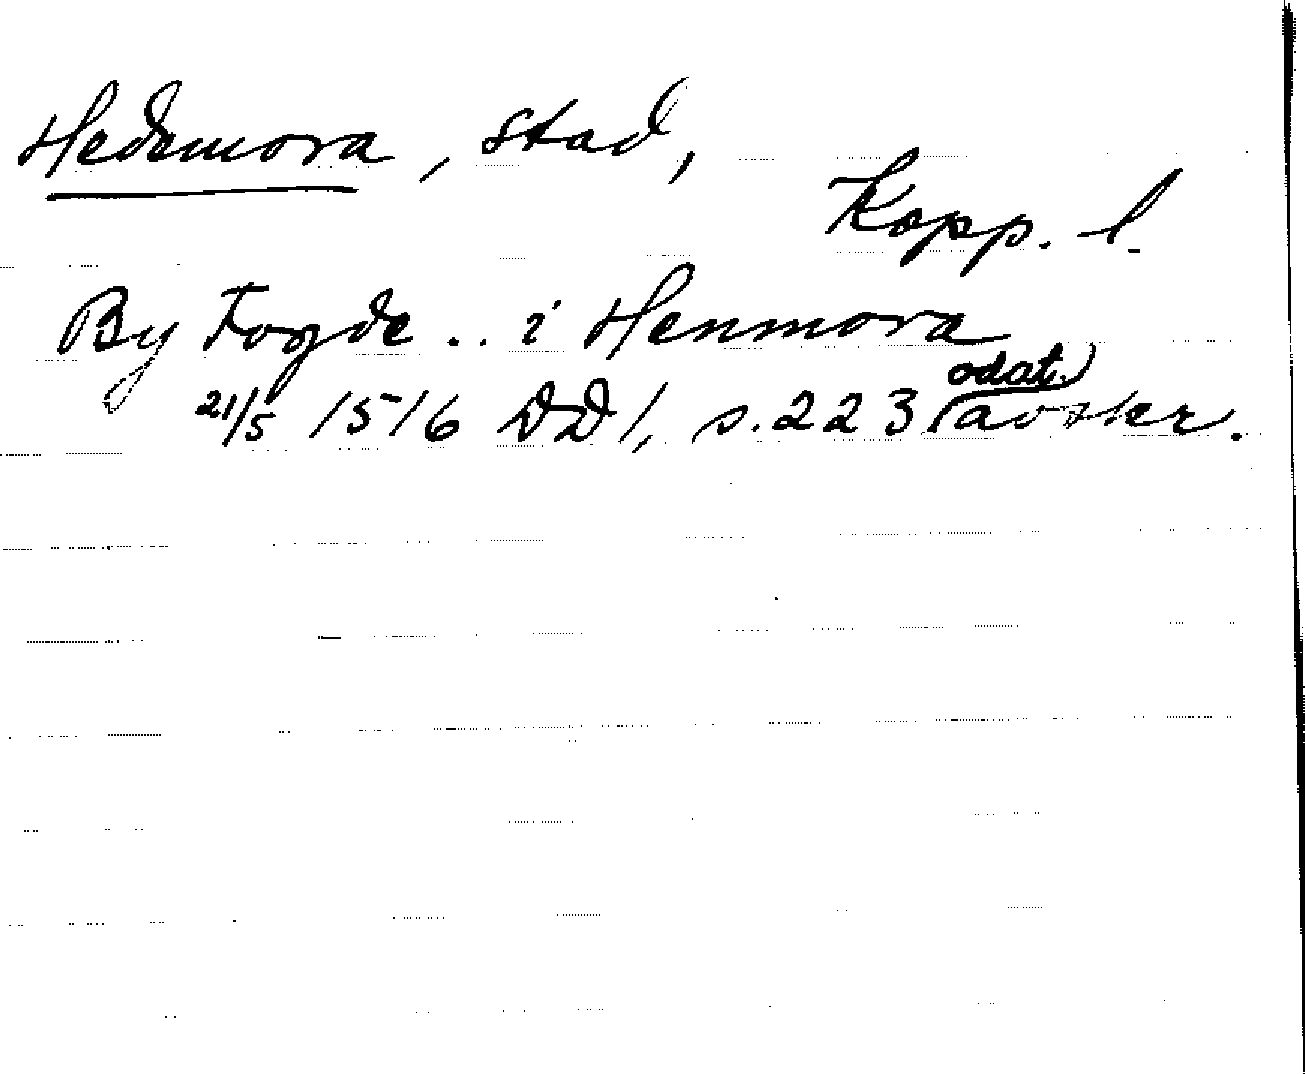 Hedemora, stad,
Kopp. l.
By Fogde .. i Henmora
21/5 1516 DD 1, s. 223 (avskr.
odat.)